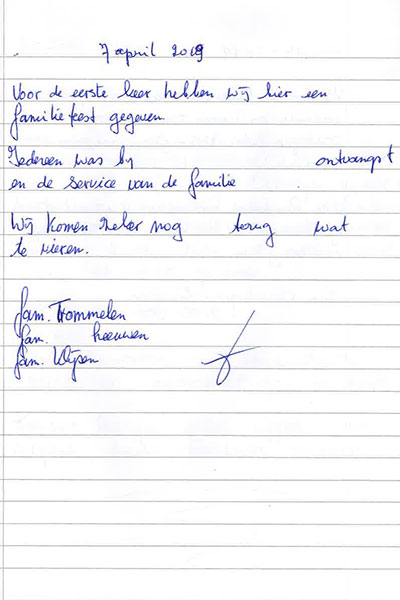 7 april 2019
Voor de eerste keer hebben wij hier een
familiefeest gegeven
Iedereen was by ontvangst
en de service van de familie
Wij komen zeker nog terug wat
te vieren.
fam. Trommelen
fam. heeuwen
fam. Wijsen